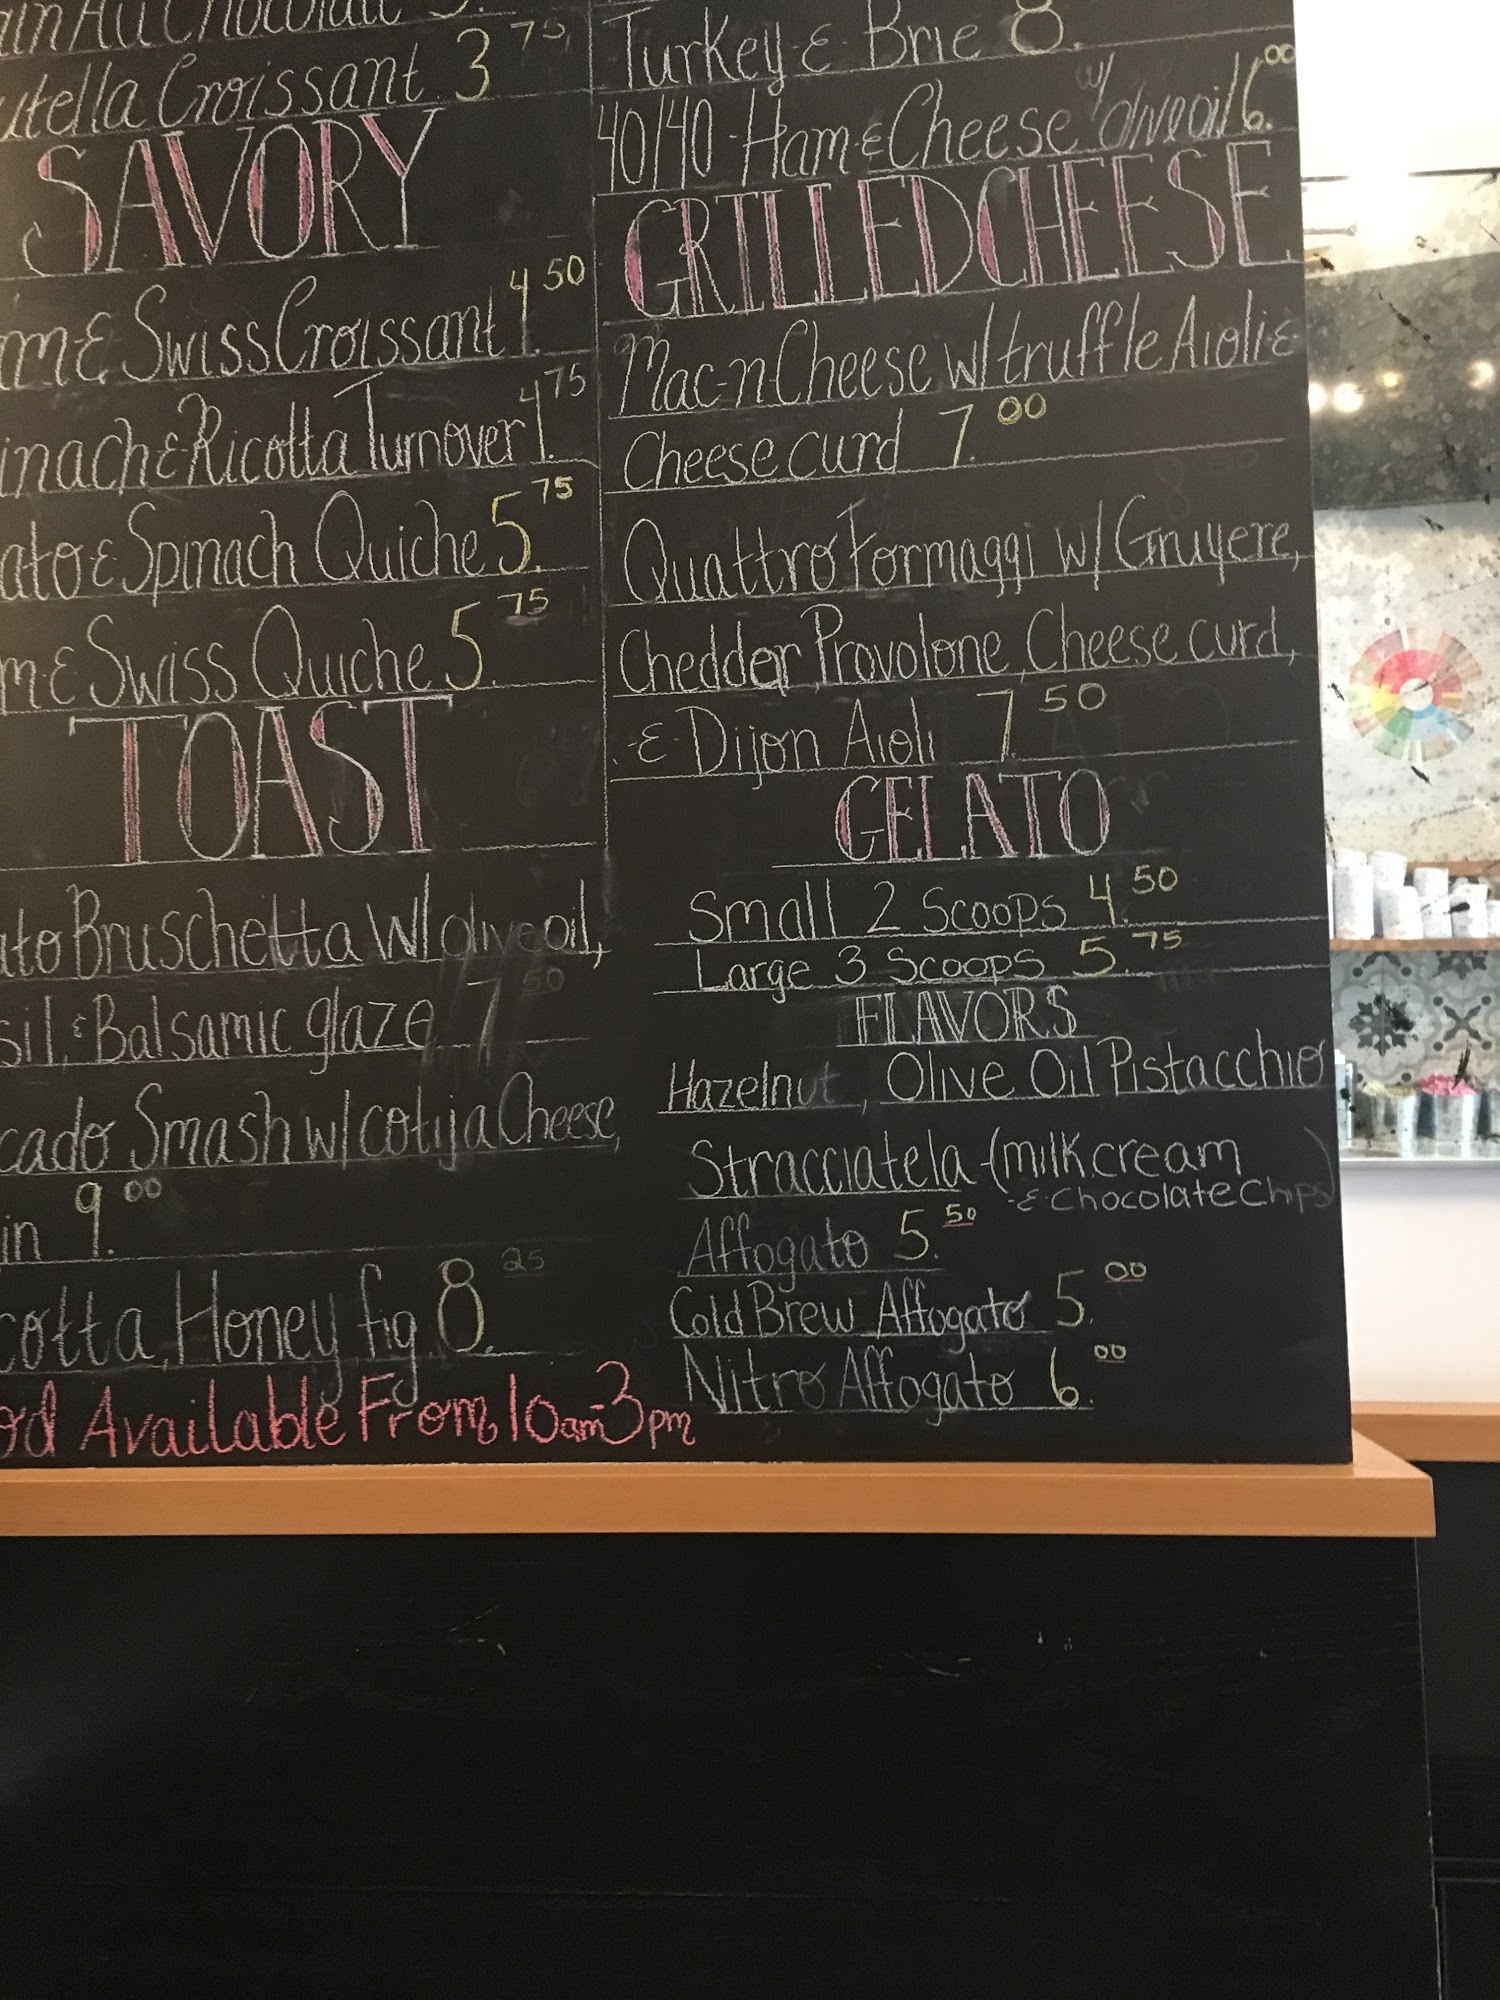 Au Chocolat
Croissant 3.75
SAVORY
Swiss Croissant 4.50
& Ricotta Turnover 4.75
& Spinach Quiche 5.75
& Swiss Quiche 5.75
TOAST
Bruschetta w/ olive oil,
& Balsamic glaze 7.50
Smash w/ cotija Cheese,
9.00
Honey fig 8.25
Available From 10am-3pm
Turkey & Brie 8.
40/40 - Ham & Cheese w/ olive oil 6.00
GRILLED CHEESE
Mac-n-Cheese w/ truffle Aioli &
Cheese curd 7.00
Quattro Formaggi w/ Gruyere,
Cheddar, Provolone, Cheese curd,
& Dijon Aioli 7.50
GELATO
Small 2 Scoops 4.50
Large 3 Scoops 5.75
FLAVORS
Hazelnut, Olive Oil Pistacchio
Stracciatela (milk cream
& Chocolate Chips)
Affogato 5.50
Cold Brew Affogato 5.00
Nitro Affogato 6.00